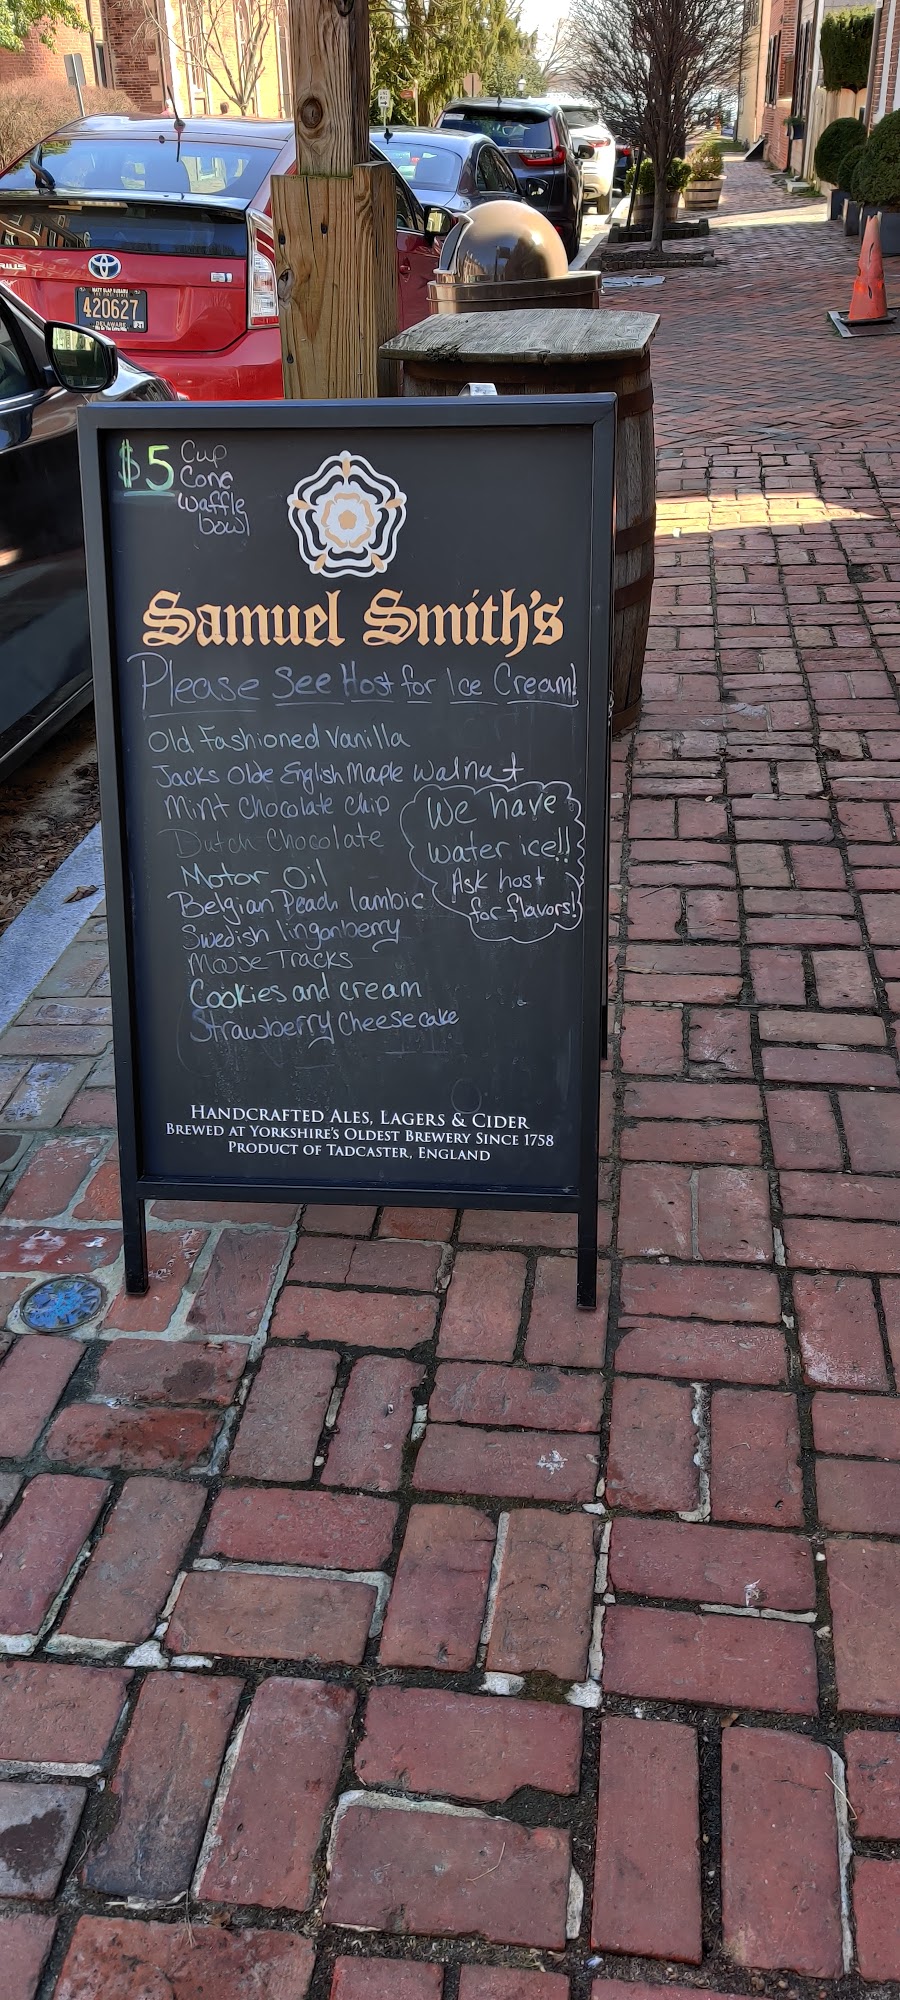 420627
DELAWARE
$5 Cup
Cone
Waffle
bowl
Samuel Smith's
Please See Host for Ice Cream!
Old Fashioned Vanilla
Jacks Olde English Maple Walnut
Mint Chocolate Chip
Dutch Chocolate
Motor Oil
Belgian Peach lambic
Swedish lingonberry
Moose Tracks
Cookies and cream
Strawberry Cheesecake
We have
water ice!!
Ask host
for flavors!
HANDCRAFTED ALES, LAGERS & CIDER
BREWED AT YORKSHIRE'S OLDEST BREWERY SINCE 1758
PRODUCT OF TADCASTER, ENGLAND